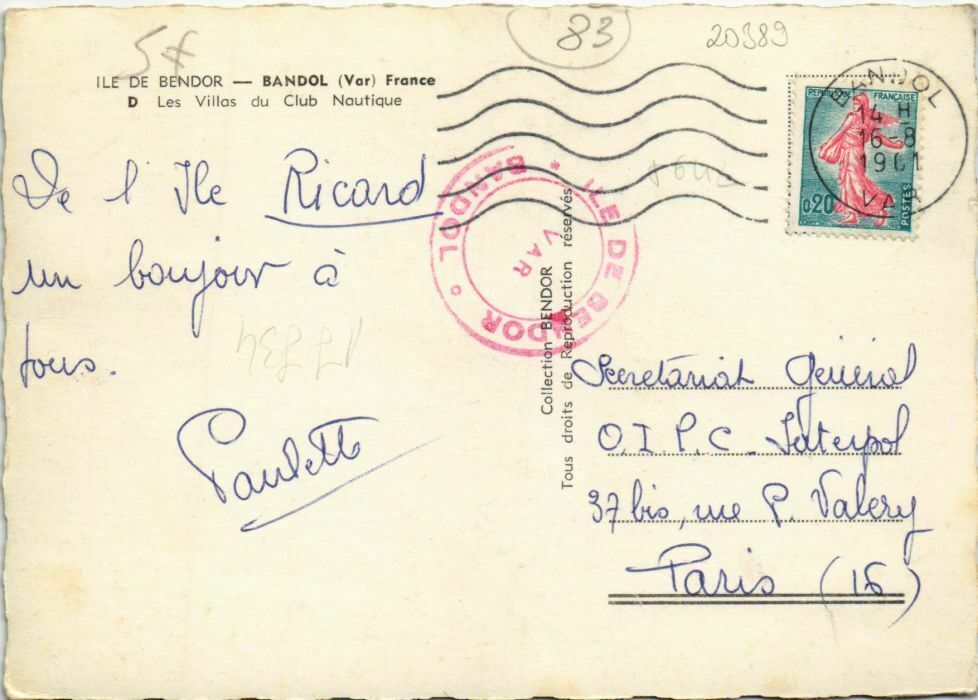 5f
83
20389
ILE DE BENDOR — BANDOL (Var) France
D Les Villas du Club Nautique
De l'Ile Ricard
un bonjour à
tous.
Paulette
17234
ILE DE BENDOR
BANDOL
VAR
Collection BENDOR
Tous droits de Reproduction réservés
REPUBLIQUE FRANÇAISE
0,20
POSTES
BANDOL
14 H
16-8
1961
VAR
Secretariat Général
O.I.P.C. Interpol
37 bis, rue P. Valery
Paris (16)